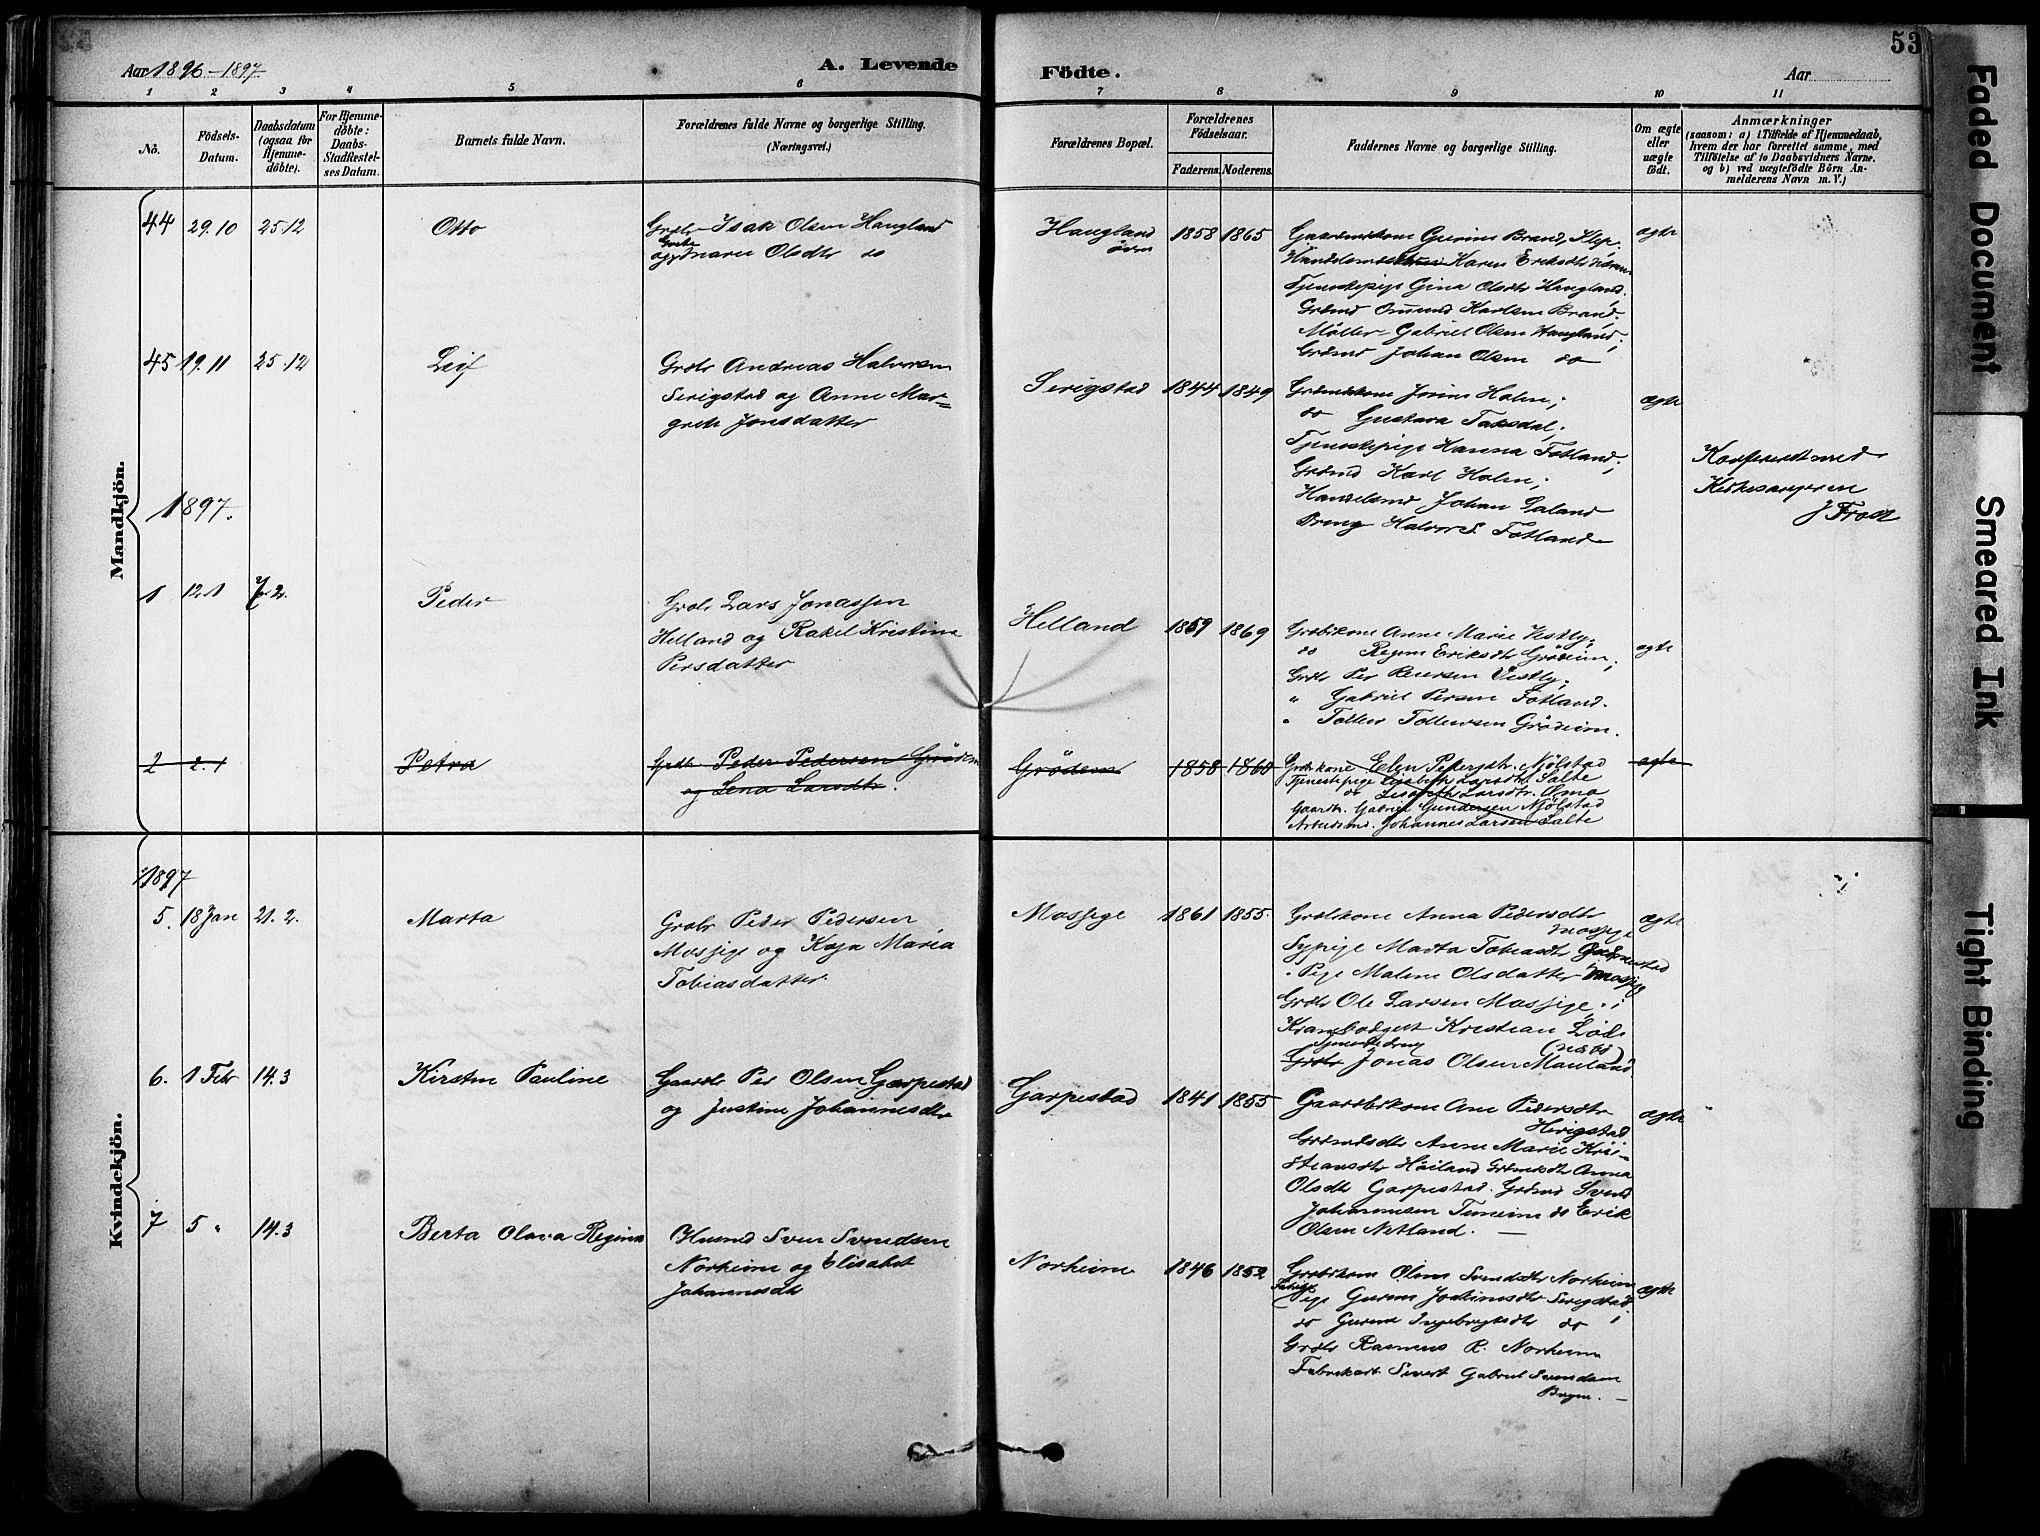 53
Aar 1896-1897.
A. Levende
Födte.
Aar
1 2 3 4 5 6 7 8 9 10 11
No.
Födsels-
Datum.
Daabsdatum
(ogsaa for
Hjemme-
döbte).
For Hjemme-
döbte:
Daabs-
Stadfæstel-
ses Datum.
Barnets fulde Navn.
Forældrenes fulde Navne og borgerlige Stilling.
(Næringsvei.)
Forældrenes Bopæl.
Forældrenes
Födselsaar.
Faderens. Moderens.
Faddernes Navne og borgerlige Stilling.
Om ægte
eller
uægte
födt.
Anmærkninger
(saasom: a) i Tilfælde af Hjemmedaab,
hvem der har forrettet samme, med
Tilföielse af to Daabsvidners Navne.
og b) ved uægtefödte Börn An-
melderens Navn m. V.)
Mandkjön.
44 29.10 25.12 Otto
Grdbr Isak Olsen Haugland
Olsdtr do
Haugland
1858 1865
Gaardmkone Gurine Brand, Klep,
Karen Eriksdtr
Tjenestepige Gina Olsdtr Haugland.
Grdmd Omund Karlsen Brand.
Möller Gabriel Olsen Haugland,
Grdmd Johan Olsen do
ægte
45 19.11 25.12 Leif
Grdbr Andreas Halvorsen
Serigstad og Anne Mar-
grete Jonsdatter
Serigstad 1844 1849
Jorine Holen;
do Gustava Taksdal;
Tjenestepige Hanna Fotland;
Grdmd Karl Holen;
Handelsmd Johan Laland
Dreng Halvor S. Fotland
ægte
Konfereret med
J Frost
1897.
1 12.1 7.2. Peder
Grdbr Lars Jonassen
Helland og Rakel Kristine
Persdatter
Helland 1859 1869
Grdbrkone Anne Marie Vestly;
do Regine Eriksdtr Grödeim;
Grdbr Per Vestly;
" Gabriel Persen Fotland.
" Grödeim.
ægte
2 2.1 Petra
Grdbr Peder Pedersen Grödem
og Lena Larsdtr.
Grödem 1858 1860
Grdbrkone Elen Pedersdtr. Njölstad
Tjenestepige Lisabeth Larsdtr. Salte
do Lisabeth Larsdtr.
Gaardbr. Gabriel Gundersen Njölstad
Arbeidsmd. Johannes Larsen Salte
ægte
Kvindekjön.
1897
5. 18 Jan 21.2. Marta
Grdbr Peder Pedersen
Mossige og Kaja Maria
Tobiasdatter
Mossige 1861 1855.
Grdbrkone Anna Pedersdtr
Mossige
Sypige Marta Tobiasdtr
Pige Malene Olsdatter Mossige
Grdbr Ole Larsen Mossige;
Kristian Lode
(Nærbö)
Grdbr Jonas Olsen Mauland
ægte
6. 1 Febr 14.3 Kirsten Pauline
Gaardbr Per Olsen Garpestad
og Justine Johannesdtr
Garpestad 1841 1855
Gaardbrkone Ane Pedersdtr
Herigstad
Grdmdsdtr Anne Marie Kri-
stiansdtr Höiland Grdmdsdtr Anna
Olsdtr Garpestad. Grdmd Svend
Johannesen Tuneim do Erik
Olsen Netland.
ægte
7 5 " 14.3 Berta Olava Regina
Husmd Sven Svendsen
Norheim og Elisabet
Johannesdtr
Norheim 1846 1852
Grdbrkone Olene Svendsdtr Norheim
Pige Gurine Serigstad
do do
Grdbr Rasmus R. Norheim
Sivert Gabriel Svendsen
Bryne.
ægte
Faded Document
Smeared Ink
Tight Binding